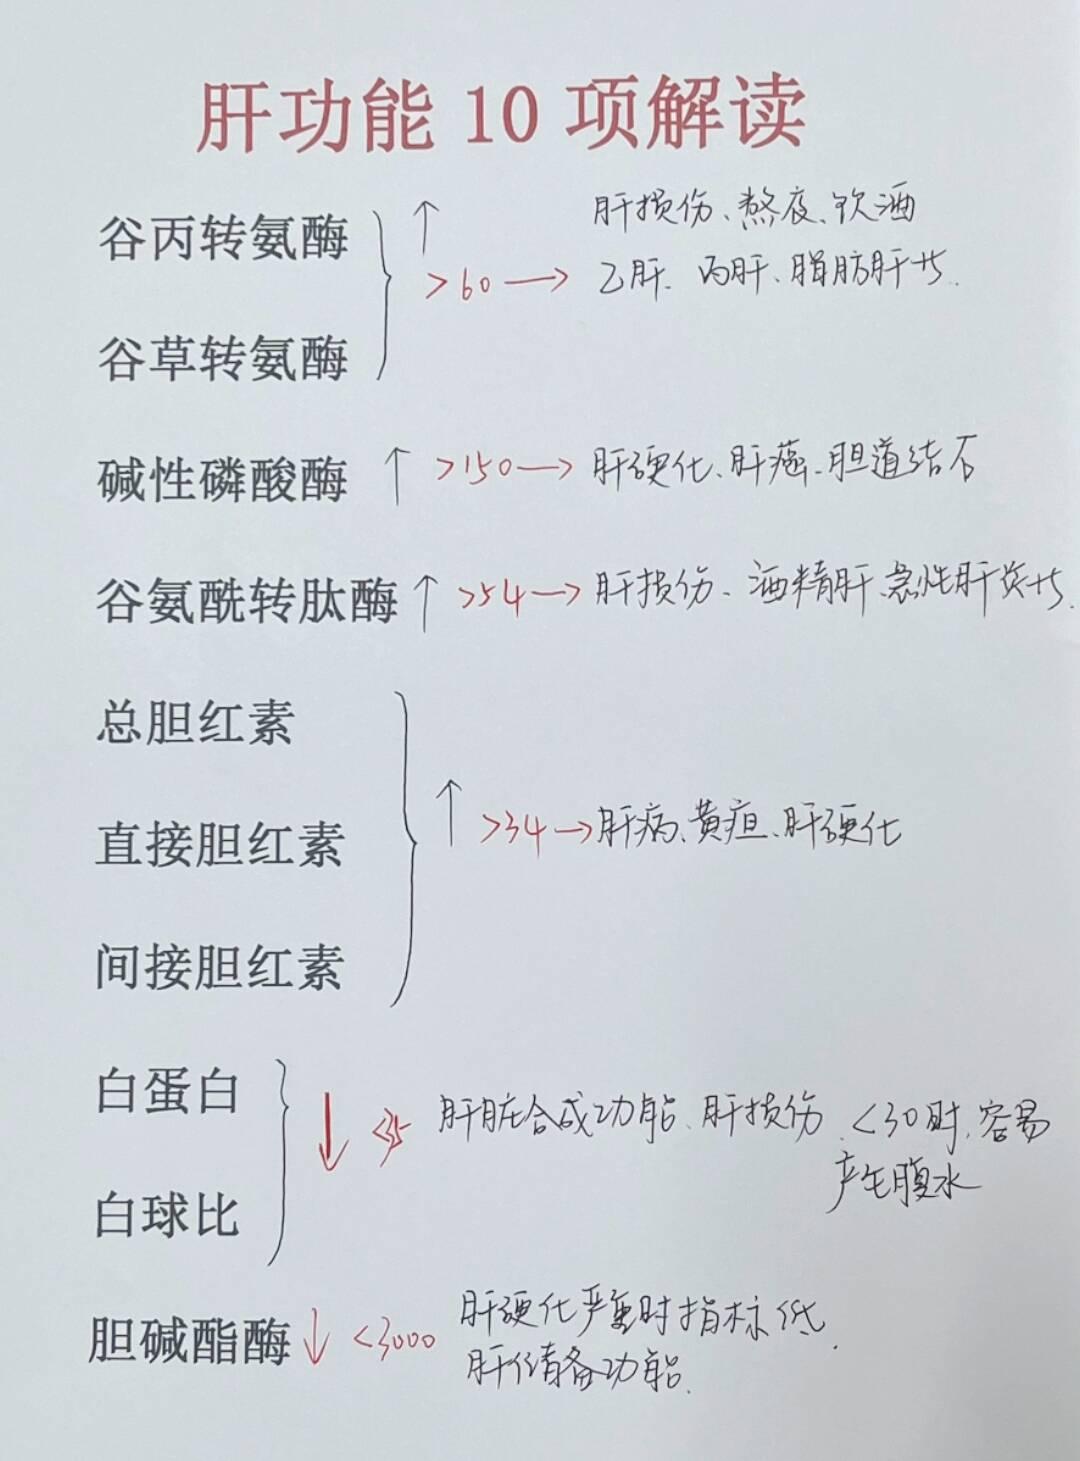 肝功能 10 项解读
谷丙转氨酶 ↑ 肝损伤、熬夜、饮酒
>60 → 乙肝、丙肝、脂肪肝等.
谷草转氨酶
碱性磷酸酶 ↑ >150 → 肝硬化、肝癌、胆道结石
谷氨酰转肽酶 ↑ >54 → 肝损伤、酒精肝、急性肝炎等.
总胆红素
直接胆红素 ↑ >34 → 肝病、黄疸、肝硬化
间接胆红素
白蛋白 ↓ <35 肝脏合成功能、肝损伤、<30时,容易
产生腹水
白球比
胆碱酯酶 ↓ <3000 肝硬化严重时指标低.
肝储备功能.